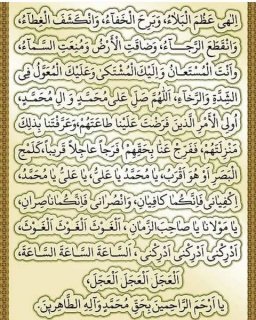 اِلٰهى عَظُمَ الْبَلاءُ، وَبَرِحَ الْخَفاءُ، وَانْكَشَفَ الْغِطاءُ،
وَانْقَطَعَ الرَّجاءُ، وَضاقَتِ الْاَرْضُ وَمُنِعَتِ السَّماءُ،
وَاَنْتَ الْمُسْتَعانُ وَاِلَيْكَ الْمُشْتَكى وَعَلَيْكَ الْمُعَوَّلُ فِى
الشِّدَّةِ وَالرَّخاءِ، اَللّٰهُمَّ صَلِّ عَلى مُحَمَّدٍ وَ الِ مُحَمَّدٍ،
اُولِى الْاَمْرِ الَّذينَ فَرَضْتَ عَلَيْنا طاعَتَهُمْ، وَعَرَّفْتَنا بِذلِكَ
مَنْزِلَتَهُمْ، فَفَرِّجْ عَنّا بِحَقِّهِمْ فَرَجاً عاجِلاً قَريباً، كَلَمْحِ
الْبَصَرِ اَوْ هُوَ اَقْرَبُ، يا مُحَمَّدُ يا عَلِىُّ، يا عَلِىُّ يا مُحَمَّدُ،
اِكْفِيانى فَاِنَّكُما كافِيانِ، وَانْصُرانى فَاِنَّكُما ناصِرانِ،
يا مَوْلانا يا صاحِبَ الزَّمانِ، اَلْغَوْثَ الْغَوْثَ الْغَوْثَ،
اَدْرِكْنى اَدْرِكْنى اَدْرِكْنى، اَلسّاعَةَ السّاعَةَ السّاعَةَ،
اَلْعَجَلَ الْعَجَلَ الْعَجَلَ،
يا اَرْحَمَ الرّاحِمينَ بِحَقِّ مُحَمَّدٍ وَآلِهِ الطّاهِرينَ.